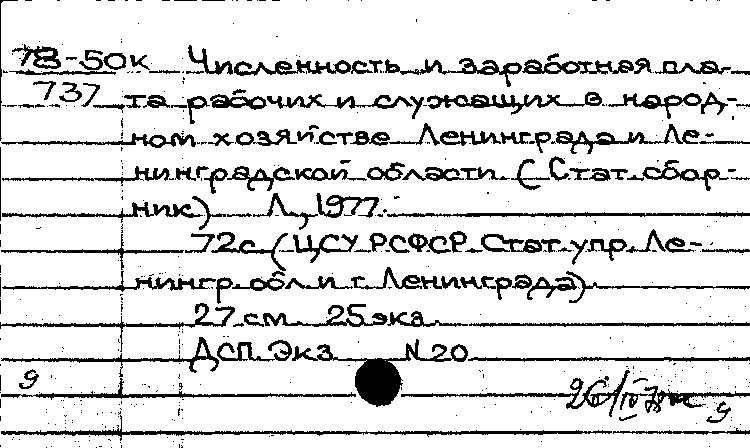 78-50к Численность и заработная пла-
737 та рабочих и служащих в народ-
ном хозяйстве Ленинграда и Ле-
нинградской области. (Стат.сбор-
ник) Л., 1977.
72с. (ЦСУ РСФСР. Стат.упр. Ле-
нингр. обл. и г. Ленинграда).
27 см. 25 экз.
ДСП. Экз. N 20
9
26/IV 78 9